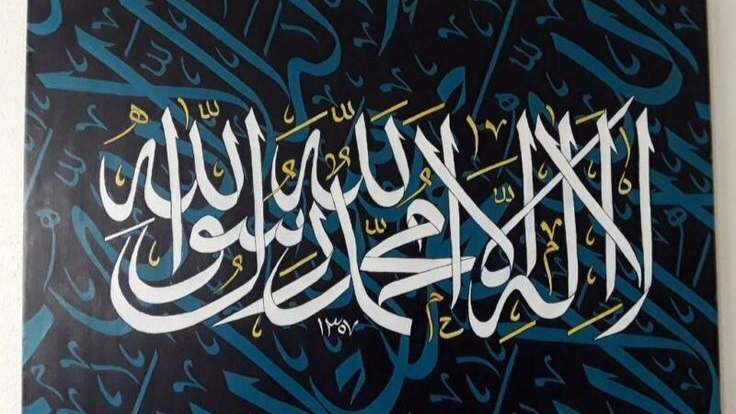 لا إله إلا الله محمد رسول الله
١٣٥٧